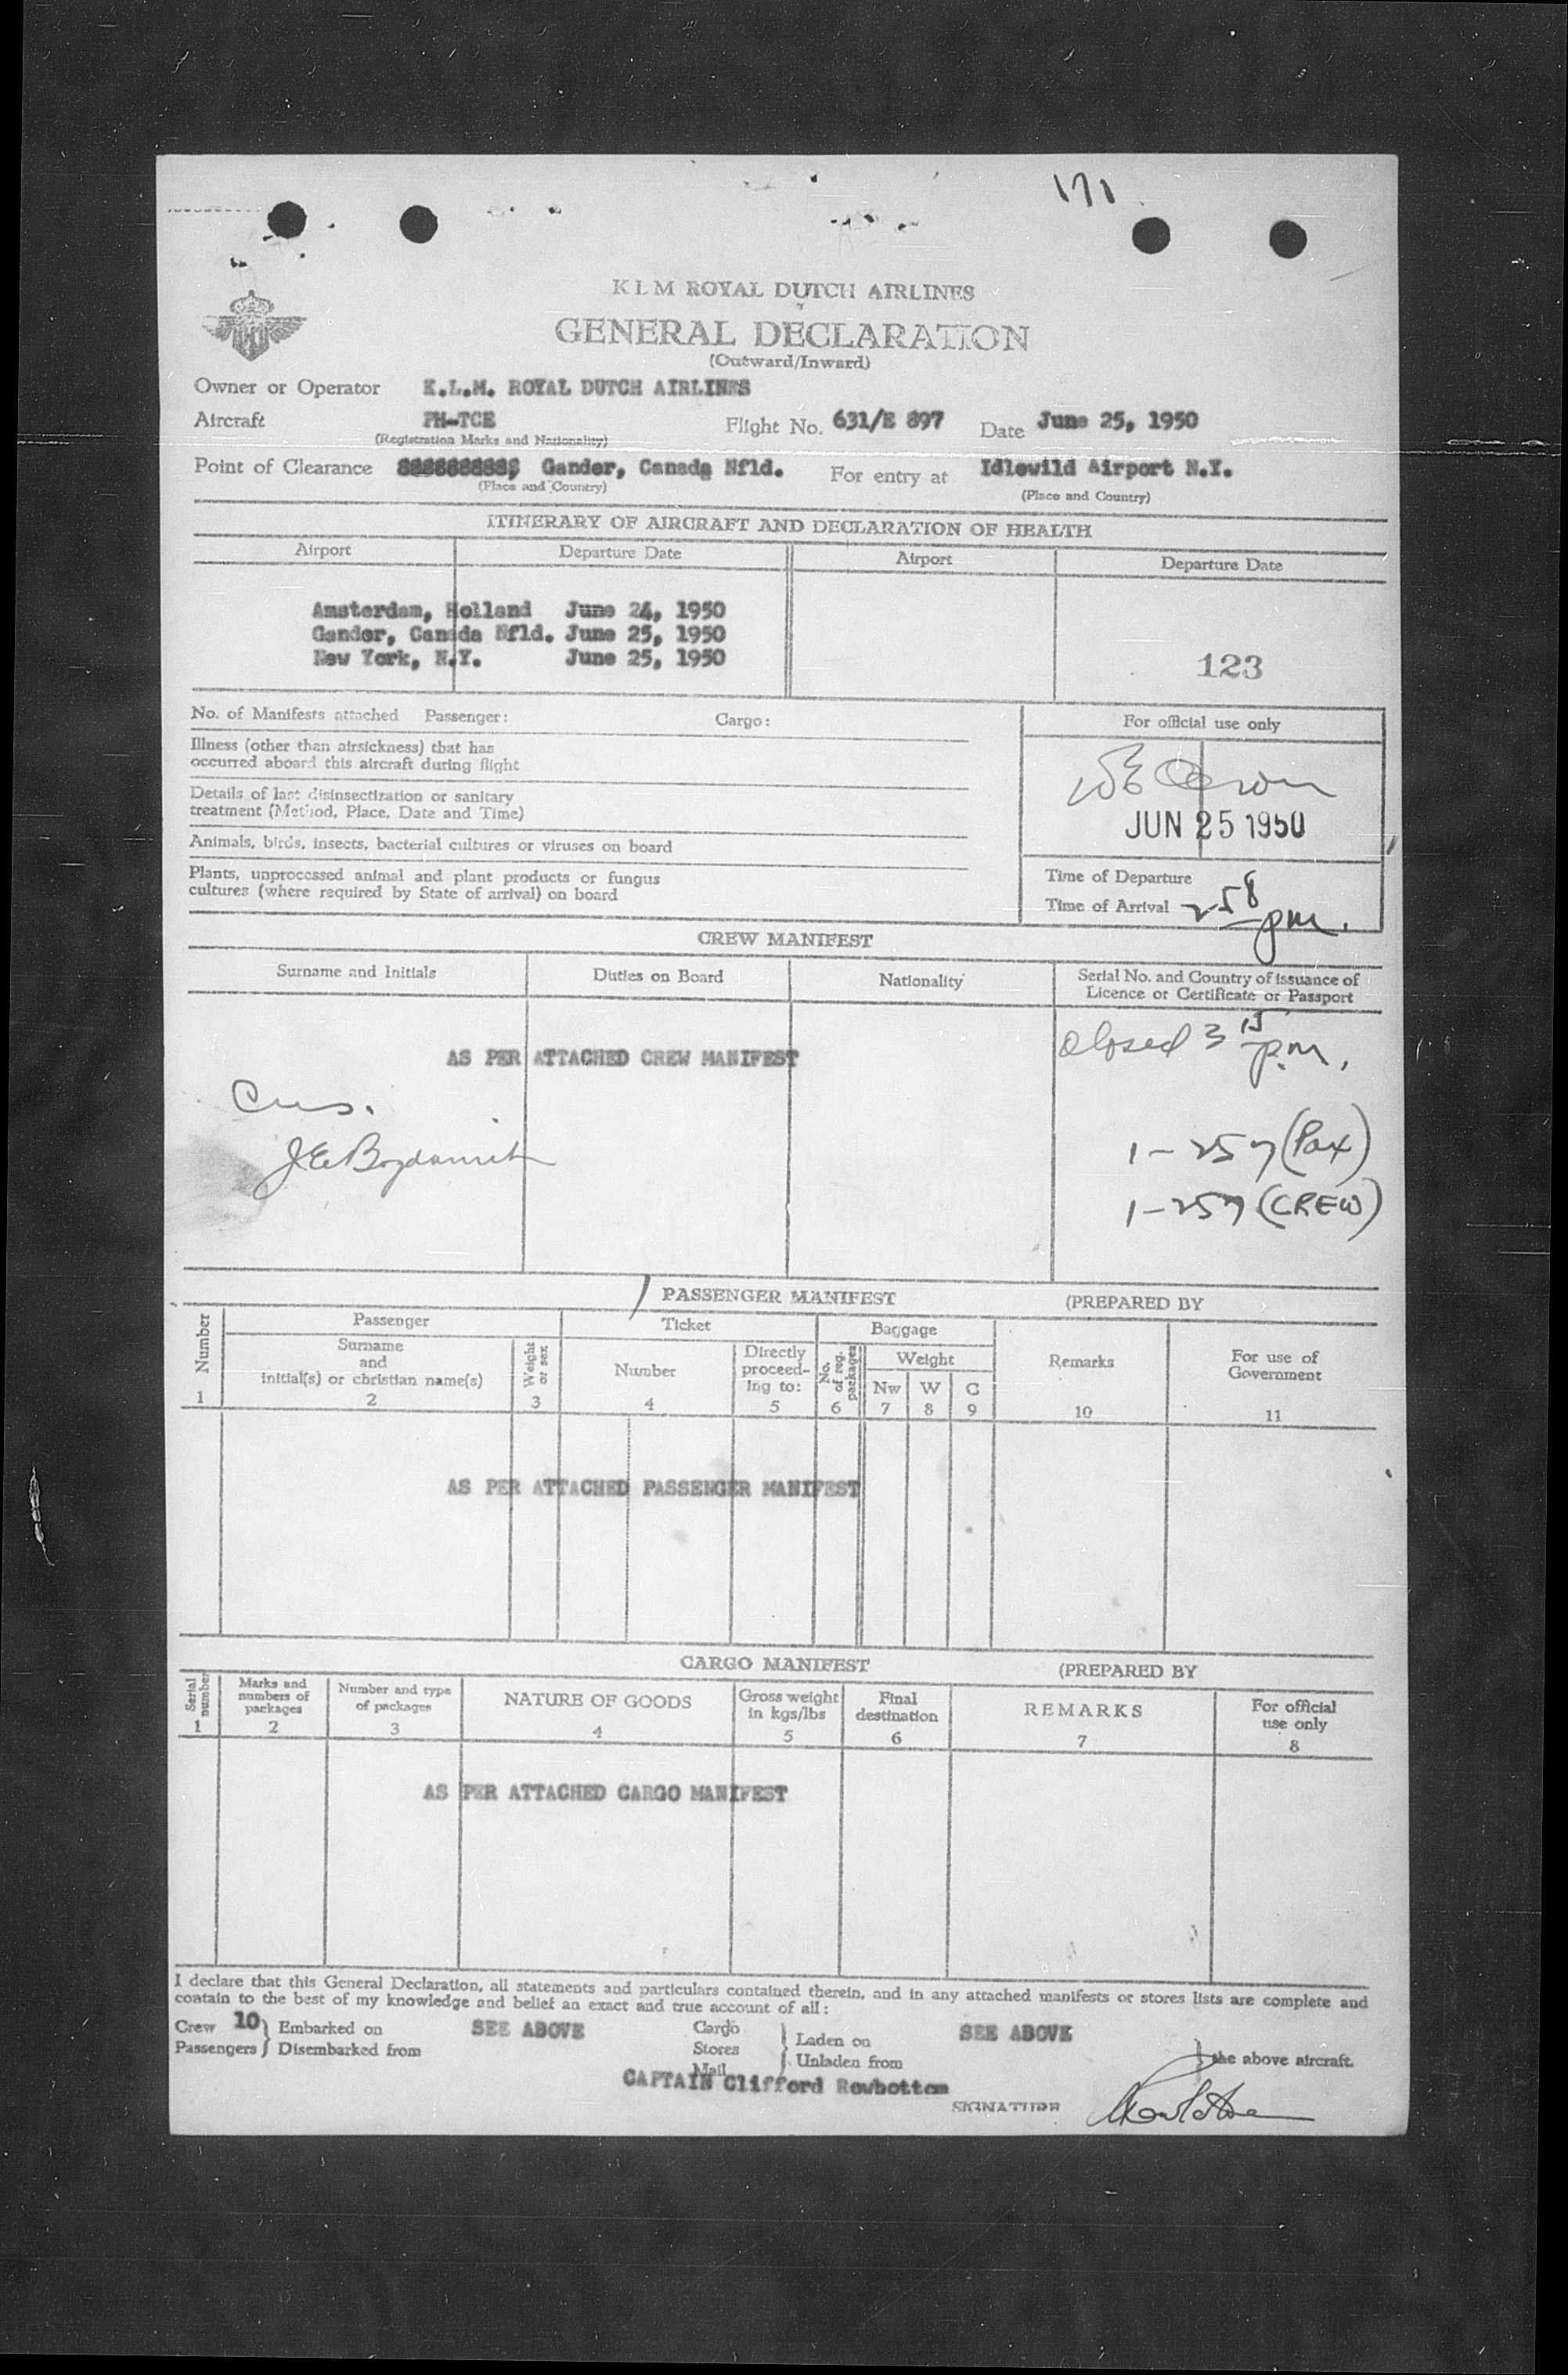 171
KLM ROYAL DUTCH AIRLINES
GENERAL DECLARATION
(Outward/Inward)
Owner or Operator K.L.M. ROYAL DUTCH AIRLINES
Aircraft PH-TCE Flight No. 631/E 897 Date June 25, 1950
(Registration Marks and Nationality)
Point of Clearance Gander, Canada Nfld. For entry at Idlewild Airport N.Y.
(Place and Country) (Place and Country)
ITINERARY OF AIRCRAFT AND DECLARATION OF HEALTH
Airport Departure Date Airport Departure Date
Amsterdam, Holland June 24, 1950
Gander, Canada Nfld. June 25, 1950
New York, N.Y. June 25, 1950
123
No. of Manifests attached Passenger: Cargo:
For official use only
Illness (other than airsickness) that has
occurred aboard this aircraft during flight
Details of last disinsectization or sanitary
treatment (Method, Place, Date and Time)
JUN 25 1950
Animals, birds, insects, bacterial cultures or viruses on board
Plants, unprocessed animal and plant products or fungus
cultures (where required by State of arrival) on board
Time of Departure
Time of Arrival 2 58 pm.
CREW MANIFEST
Surname and Initials
Duties on Board
Nationality
Serial No. and Country of issuance of
Licence or Certificate or Passport
closed 3 15 p.m.
AS PER ATTACHED CREW MANIFEST
Cus.
1-257 (Pax)
1-257 (CREW)
PASSENGER MANIFEST (PREPARED BY
Number
Passenger Ticket Baggage
Surname
and
initial(s) or christian name(s)
Weight
or sex
Number
Directly
proceed-
ing to:
No.
of reg.
packages
Weight
Nw W C
Remarks
For use of
Government
1 2 3 4 5 6 7 8 9 10 11
AS PER ATTACHED PASSENGER MANIFEST
CARGO MANIFEST (PREPARED BY
Serial
number
Marks and
numbers of
packages
Number and type
of packages
NATURE OF GOODS
Gross weight
in kgs/lbs
Final
destination
REMARKS
For official
use only
1 2 3 4 5 6 7 8
AS PER ATTACHED CARGO MANIFEST
I declare that this General Declaration, all statements and particulars contained therein, and in any attached manifests or stores lists are complete and
contain to the best of my knowledge and belief an exact and true account of all:
Crew 10 Embarked on SEE ABOVE Cargo Laden on SEE ABOVE
Passengers Disembarked from Stores Unladen from the above aircraft.
Mail
CAPTAIN Clifford Rowbottom
SIGNATURE